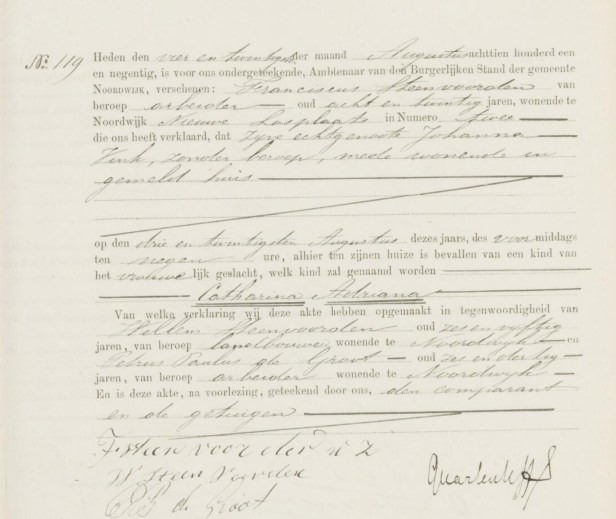 No. 119
Heden den vier en twintigsten der maand Augustus achttien honderd een
en negentig, is voor ons ondergeteekende, Ambtenaar van den Burgerlijken Stand der gemeente
NOORDWIJK, verschenen: Franciscus Steenvoorden van
beroep arbeider oud acht en twintig jaren, wonende te
Noordwijk Nieuwe Losplaats in Numero twee
die ons heeft verklaard, dat zijne echtgenoote Johanna
Vink, zonder beroep, mede wonende in
gemeld huis
op den drie en twintigsten Augustus dezes jaars, des voormiddags
ten negen ure, alhier ten zijnen huize is bevallen van een kind van
het vrouwelijk geslacht, welk kind zal genaamd worden
Catharina Adriana
Van welke verklaring wij deze akte hebben opgemaakt in tegenwoordigheid van
Willem Steenvoorden oud zes en vijftig
jaren, van beroep landbouwer wonende te Noordwijk en
Petrus Paulus de Groot oud zes en dertig
jaren, van beroep arbeider wonende te Noordwijk
En is deze akte, na voorlezing, geteekend door ons, den comparant
en de getuigen
F Steenvoorden W Z
W Steenvoorden
P P de Groot